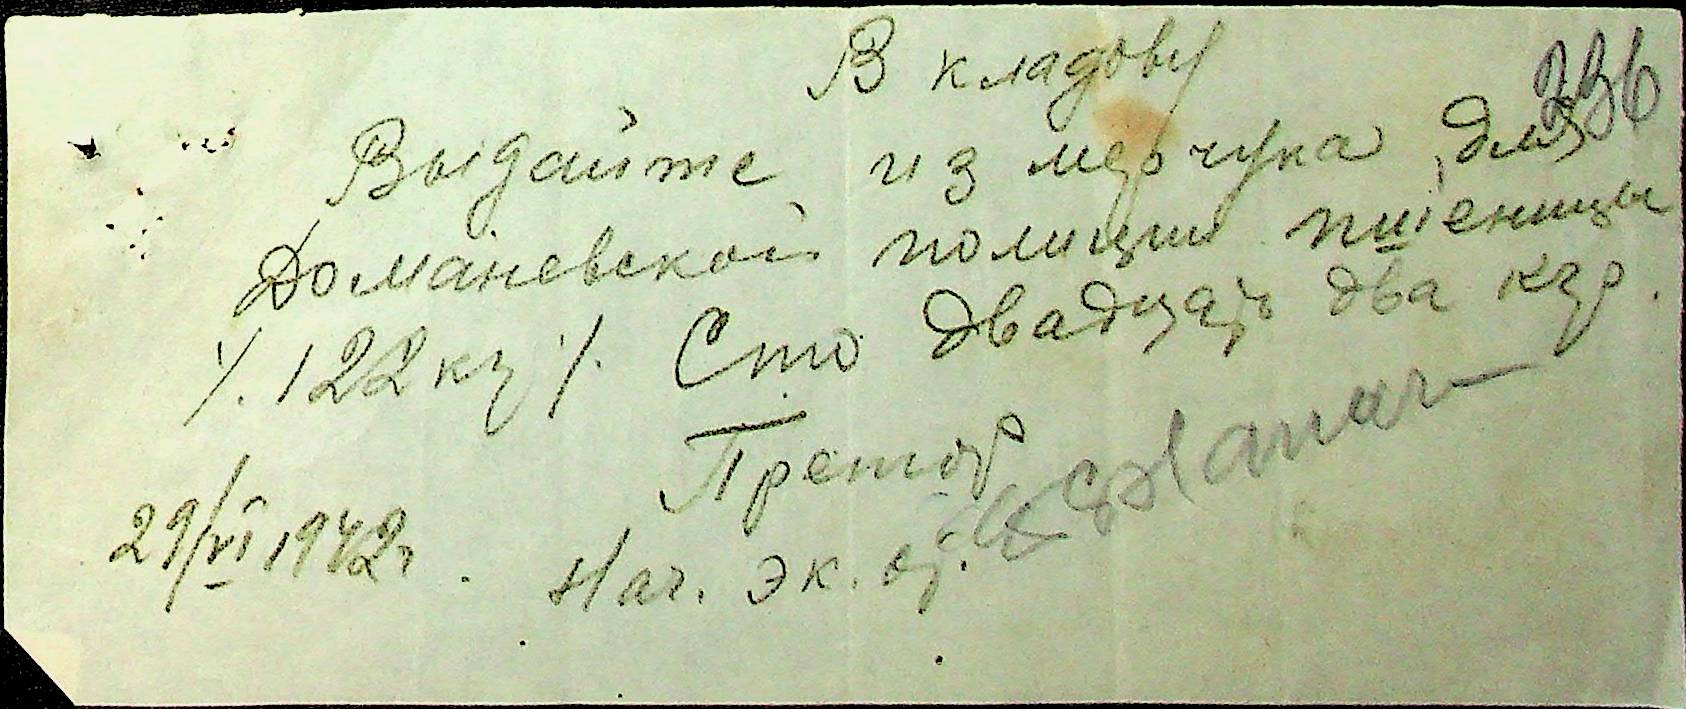 В кладову
336
Выдайте из мерчука для
Доманевской полиции пшеницы
/. 122 кг /. Сто двадцать два кгр.
Претор
29/VI 1942 г. Нач. эк. от.